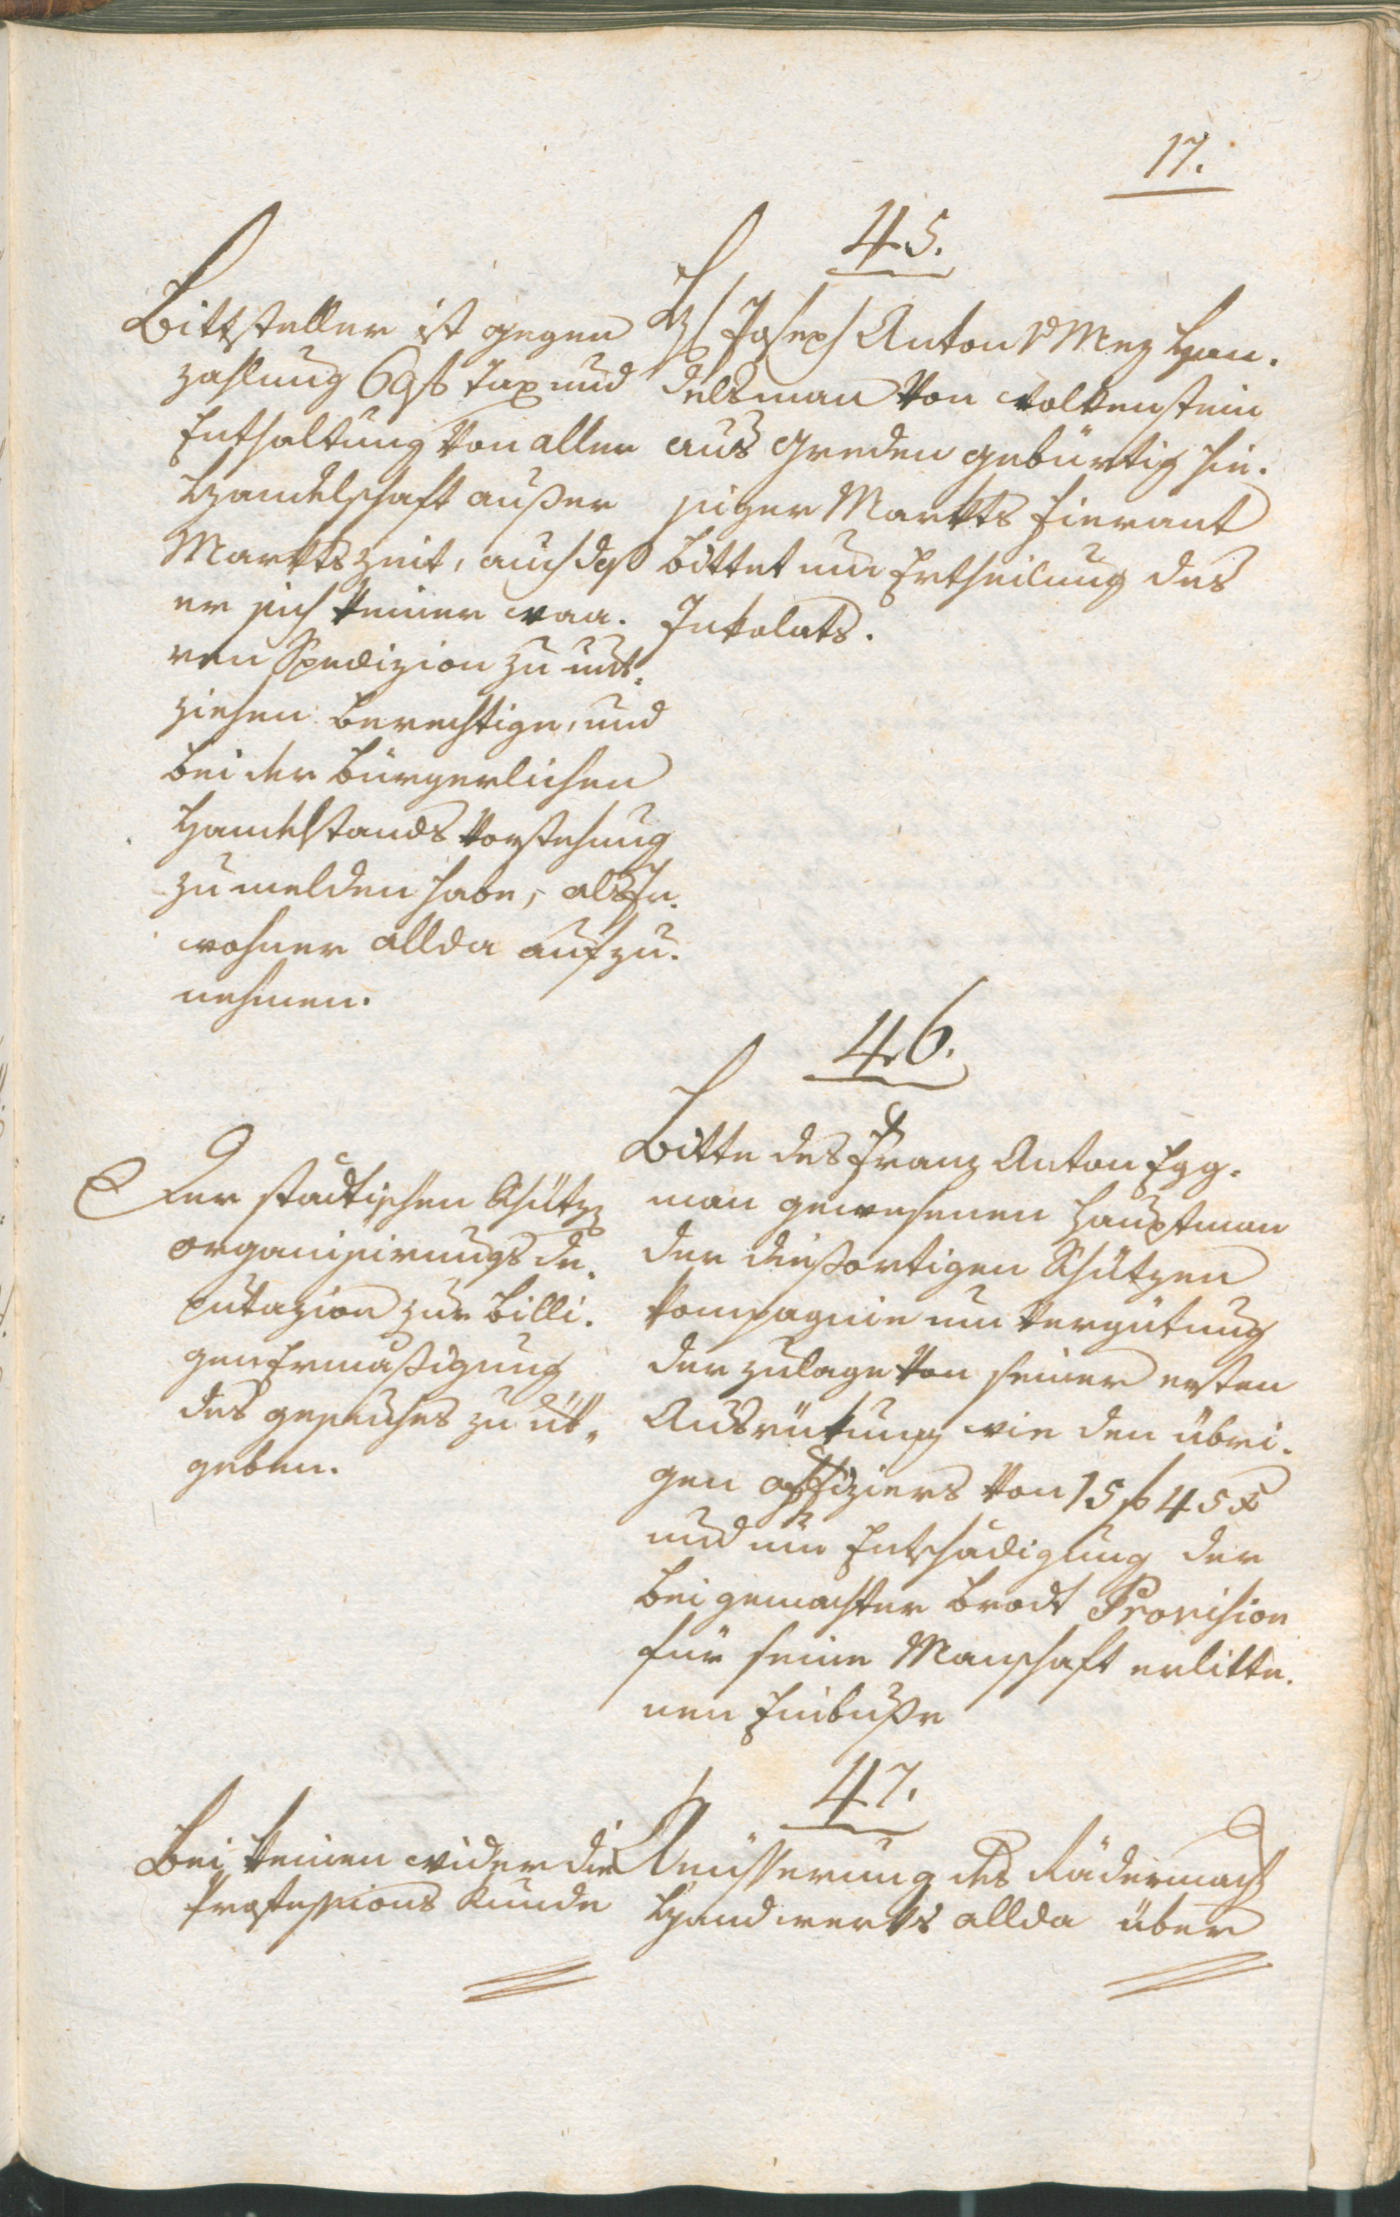 17.
45.
Bittsteller ist gegen
zahlung 6 Tax und
Enthaltung von aller
Handelschaft außer
Marktszeit, auch daß
er sich keiner waa-
ren Spedizion zu unt-
ziehen berechtige, und
bei der bürgerlichen
Handelstands Vorstehung
zu melden habe, als In-
wohner allda aufzu-
nehmen.
H Joseph Anton v Mez Han-
delsman von Wolkenstein
aus Greden gebürtig hie-
siger Markts fierant
bittet um Ertheilung des
Inkolats.
46.
Der städtischen Schützen
organisirungs de-
putazion zur billi-
gen Ermäßigung
des gesuches zu üb-
geben.
Bitte des Franz Anton Egg-
man gewesenen Hauptman
der dießortigen Schützen
Kompagnie um Vergütung
der zulage von seiner ersten
Ausrükung wie den übri-
gen offiziers von 15 f 45 x
und um Entschädigung der
bei gemachter brodt Provision
für seine Manschaft erlitte-
nen Einbuße
47.
Bei keinen wider die
Professions Kunde
Aeüsserung des Rädermach
Handwerks allda über